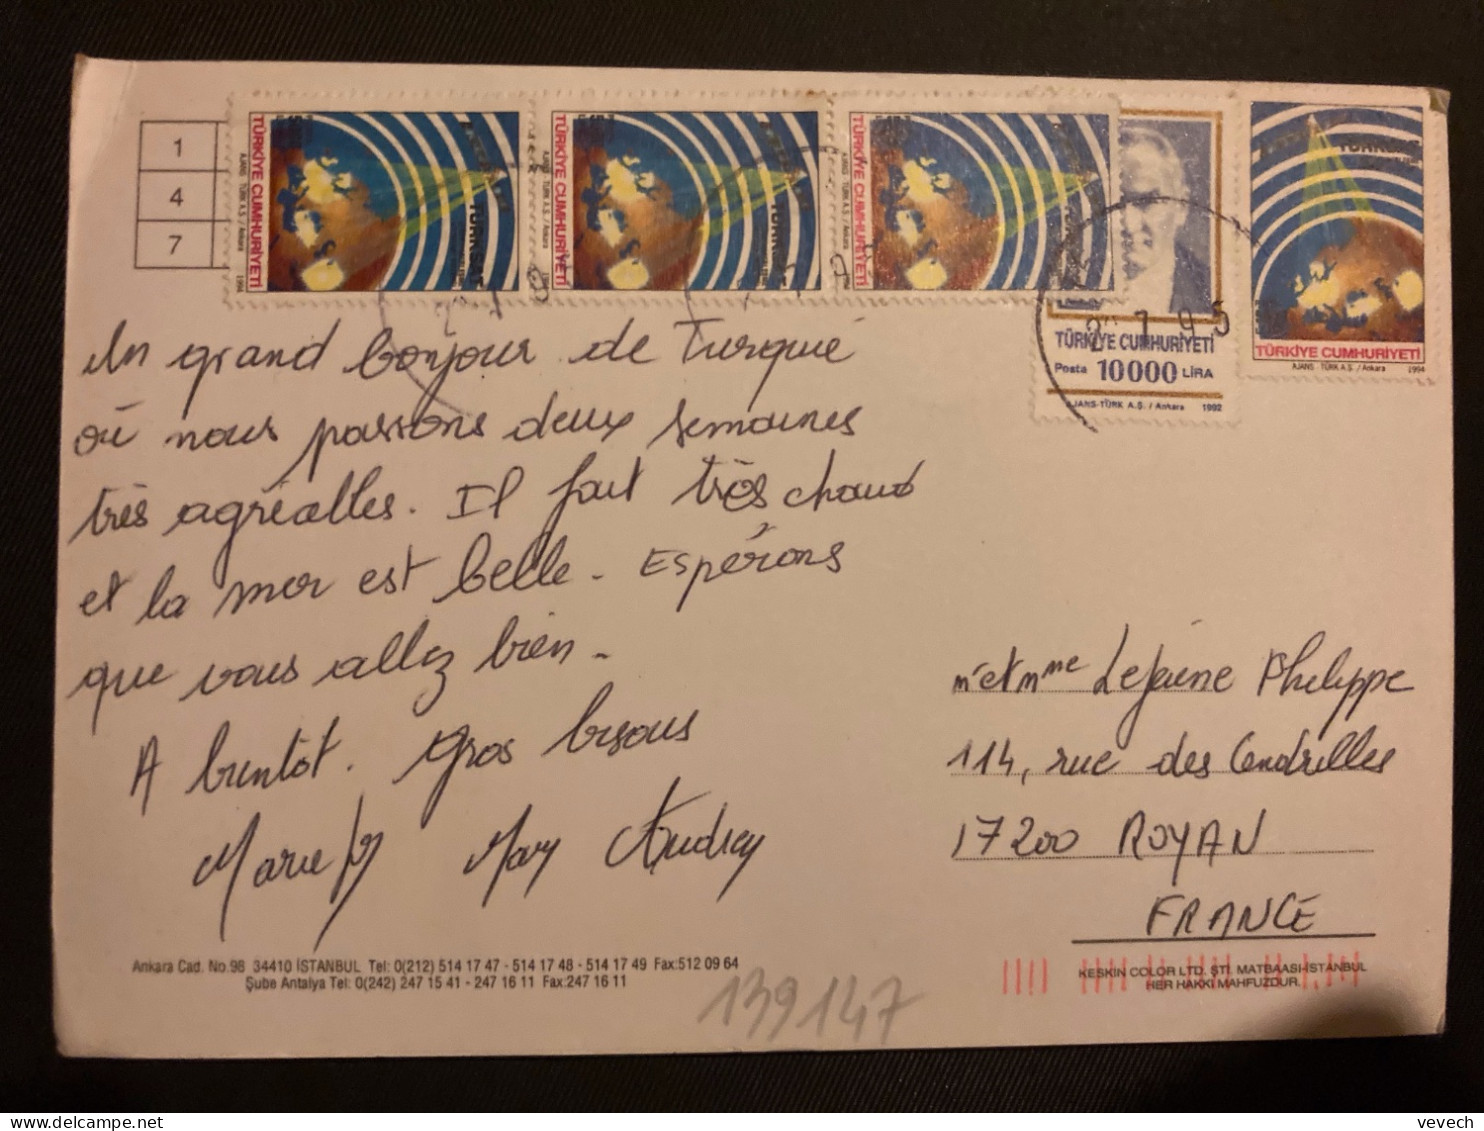 1
4
7
TÜRKİYE CUMHURİYETİ
AJANS - TÜRK A.Ş. / Ankara 1994
TÜRKSAT
TÜRKİYE CUMHURİYETİ
AJANS - TÜRK A.Ş. / Ankara 1994
TÜRKSAT
TÜRKİYE CUMHURİYETİ
AJANS - TÜRK A.Ş. / Ankara 1994
TÜRKİYE CUMHURİYETİ
Posta 10000 LİRA
AJANS-TÜRK A.Ş. / Ankara 1992
7 95
TÜRKSAT
TÜRKİYE CUMHURİYETİ
AJANS - TÜRK A.Ş. / Ankara 1994
Un grand bonjour de Turquie
où nous passons deux semaines
très agréables. Il fait très chaud
et la mer est belle - Espérons
que vous allez bien -
A bientôt. Gros bisous
Marie May Audrey
m et mme Lejeune Philippe
114, rue des Cendrilles
17200 ROYAN
FRANCE
Ankara Cad. No.98 34410 İSTANBUL Tel: 0(212) 514 17 47 - 514 17 48 - 514 17 49 Fax:512 09 64
Şube Antalya Tel: 0(242) 247 15 41 - 247 16 11 Fax:247 16 11
139147
KESKIN COLOR LTD. ŞTİ. MATBAASI-İSTANBUL
HER HAKKI MAHFUZDUR.
vevech